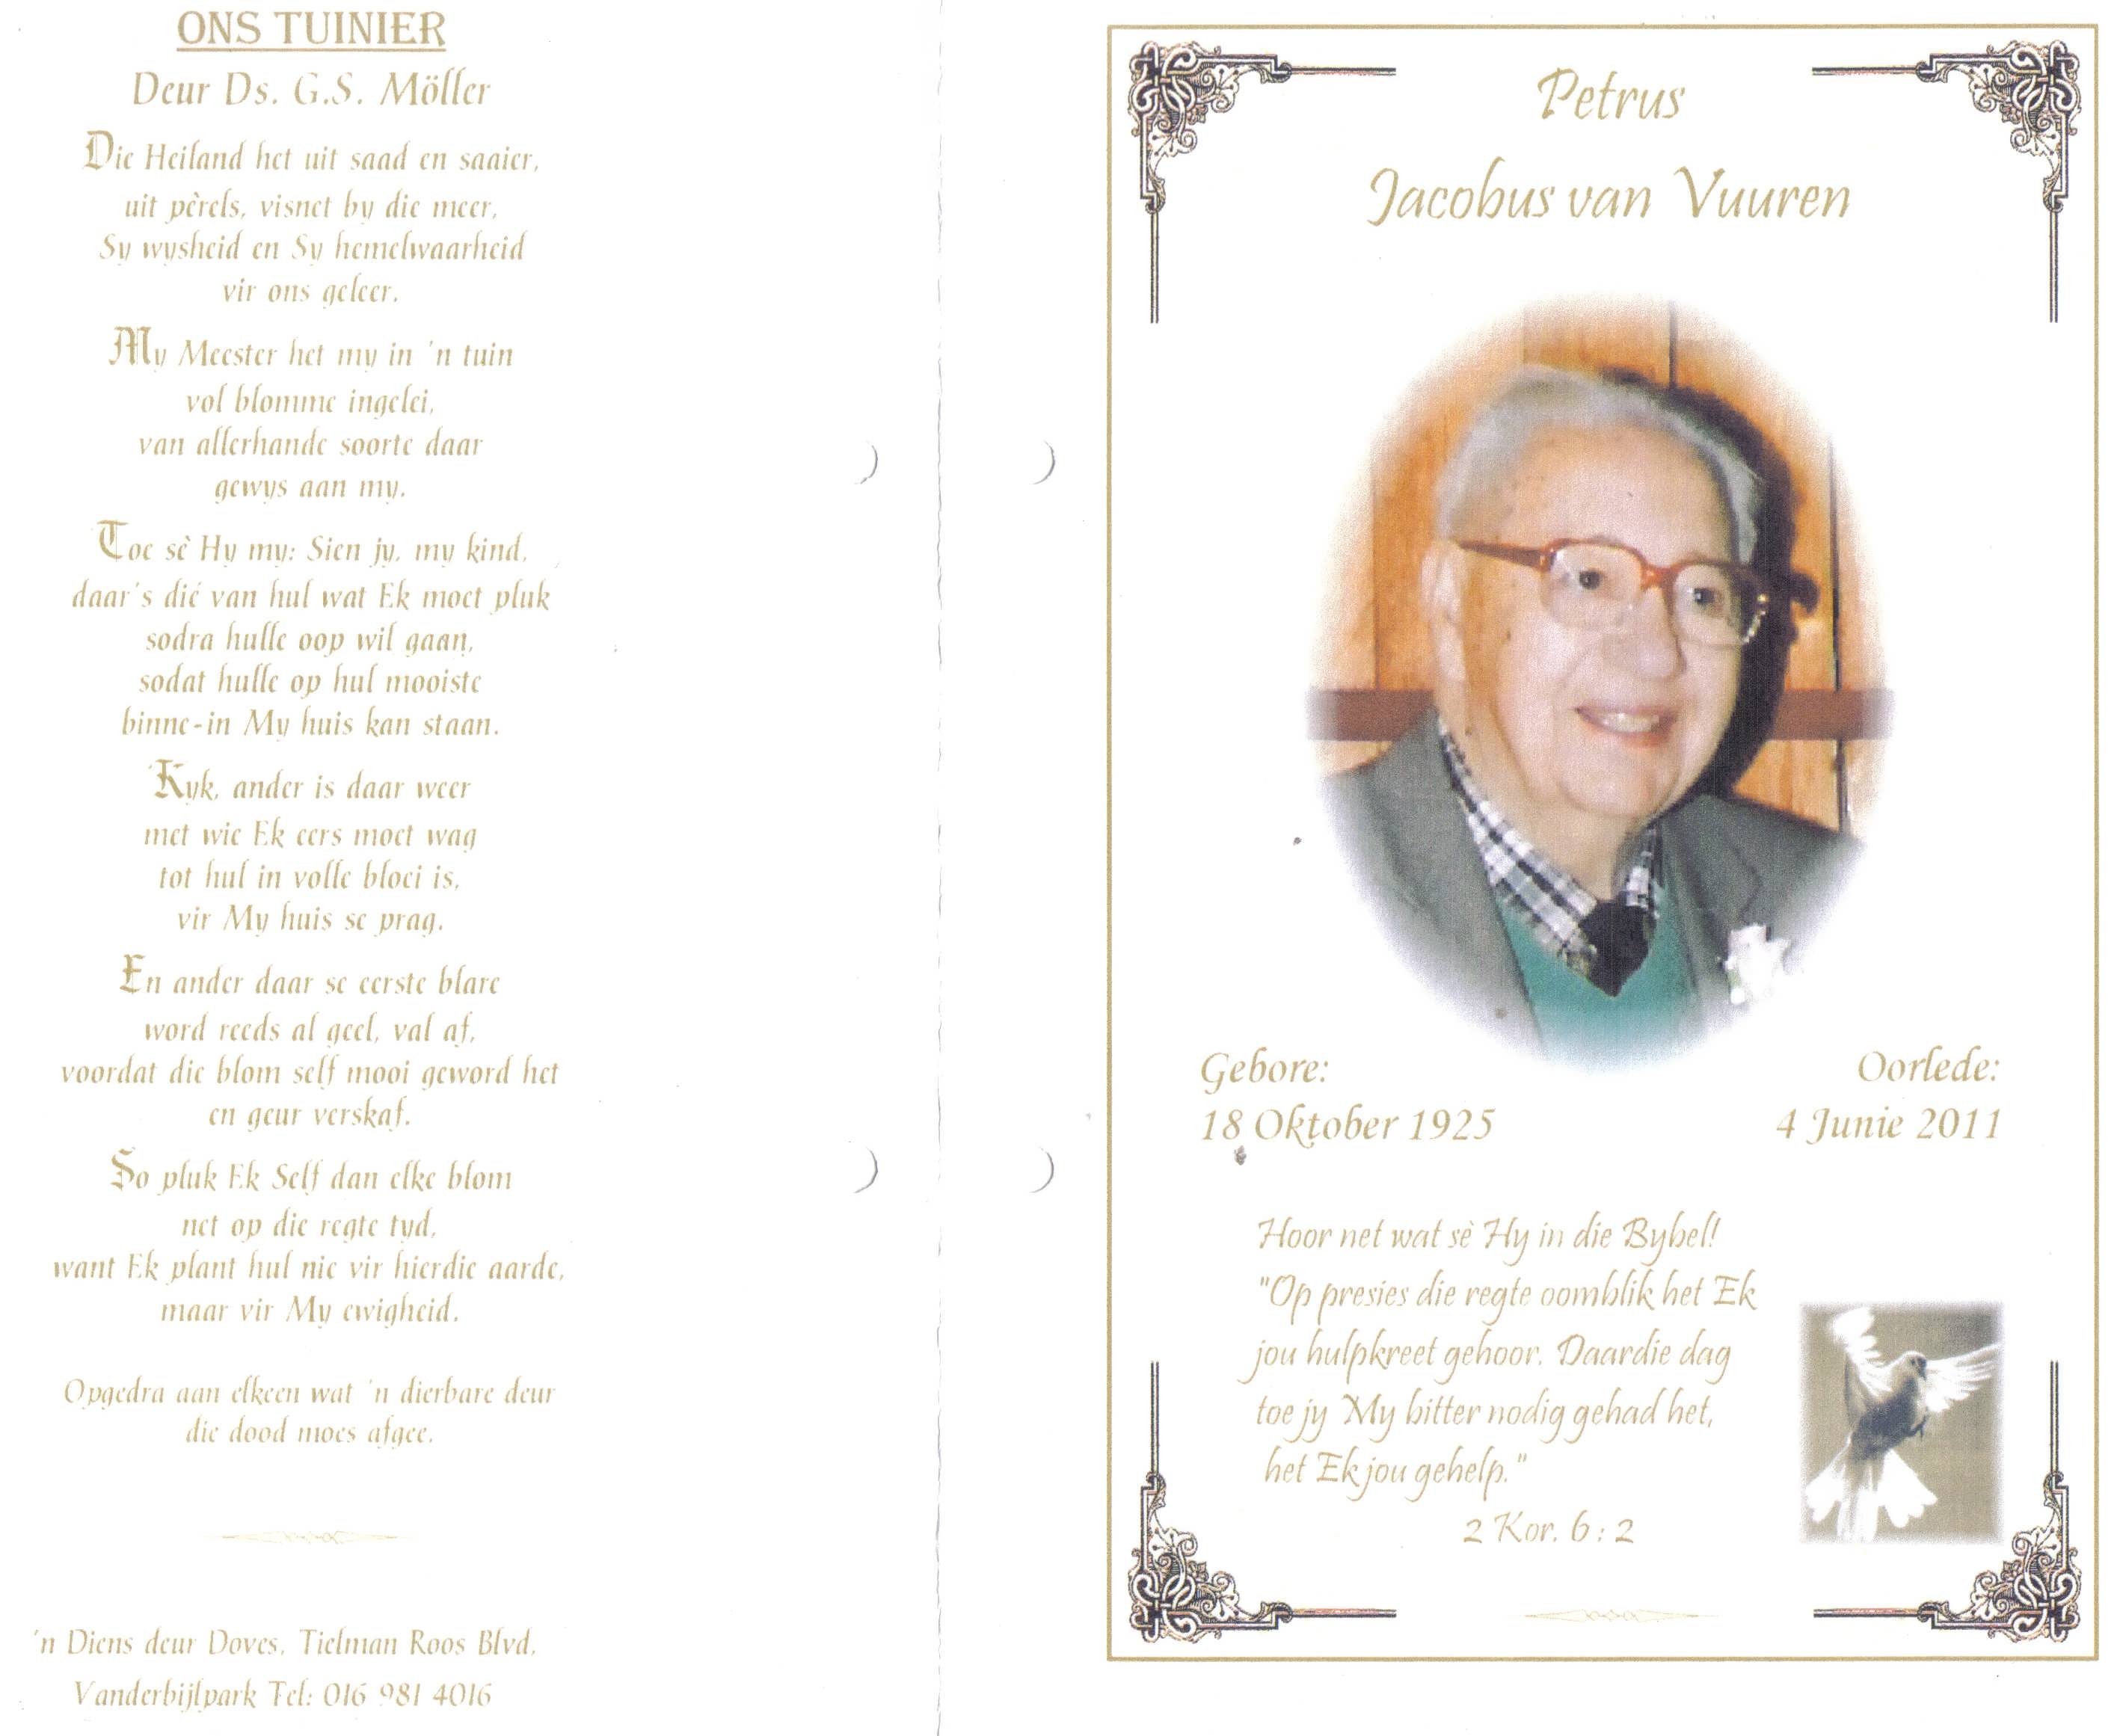 ONS TUINIER
Deur Ds. G.S. Möller
Die Heiland het uit saad en saaier,
uit pêrels, visnet by die meer,
Sy wysheid en Sy hemelwaarheid
vir ons geleer.
My Meester het my in 'n tuin
vol blomme ingelei,
van allerhande soorte daar
gewys aan my.
Toe sê Hy my: Sien jy, my kind,
daar's dié van hul wat Ek moet pluk
sodra hulle oop wil gaan,
sodat hulle op hul mooiste
binne-in My huis kan staan.
Kyk, ander is daar weer
met wie Ek eers moet wag
tot hul in volle bloei is,
vir My huis se prag.
En ander daar se eerste blare
word reeds al geel, val af,
voordat die blom self mooi geword het
en geur verskaf.
So pluk Ek Self dan elke blom
net op die regte tyd,
want Ek plant hul nie vir hierdie aarde,
maar vir My ewigheid.
Opgedra aan elkeen wat 'n dierbare deur
die dood moes afgee.
'n Diens deur Doves, Tielman Roos Blvd,
Vanderbijlpark Tel: 016 981 4016
Petrus
Jacobus van Vuuren
Gebore:
18 Oktober 1925
Oorlede:
4 Junie 2011
Hoor net wat sè Hy in die Bybel!
"Op presies die regte oomblik het Ek
jou hulpkreet gehoor. Daardie dag
toe jy My bitter nodig gehad het,
het Ek jou gehelp."
2 Kor. 6 : 2